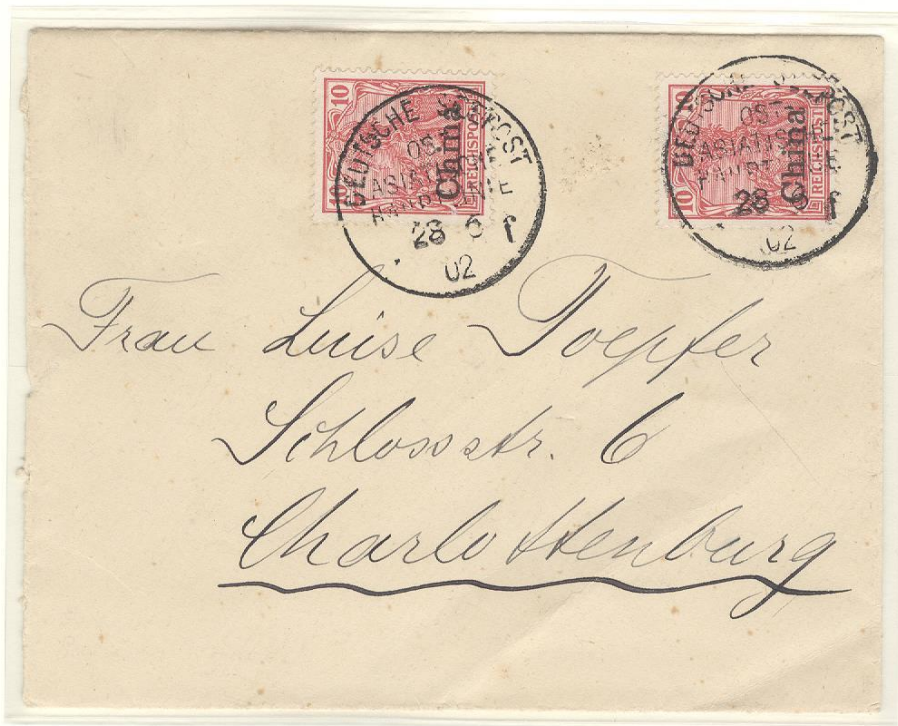 10
10
REICHSPOST
China
DEUTSCHE SEEPOST
OST-
ASIATISCHE
HAUPTLINIE
28 6 f
02
10
10
REICHSPOST
China
DEUTSCHE SEEPOST
OST-
ASIATISCHE
HAUPTLINIE
28 6 f
02
Frau Luise Toepfer
Schlossstr. 6
Charlottenburg